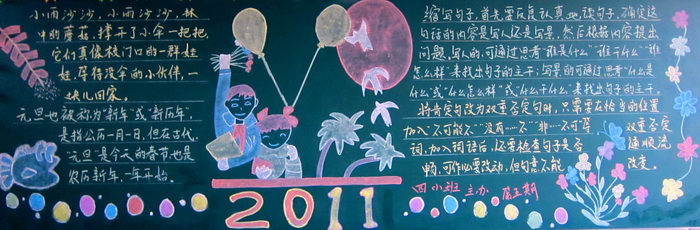 小雨沙沙，小雨沙沙，林
中的蘑菇，撑开了小伞一把把，
它们真像校门口的一群娃
娃，等待没伞的小伙伴，一
块儿回家。
元旦也被称为“新年”或“新历年”，
是指公历一月一日，但在古代，
元旦是今天的春节，也是
农历新年，一年开始。
2011
缩写句子，首先要反复认真地读句子，确定这
句话的内容是写人还是写景，然后根据内容提出
问题，写人的可通过思考“谁是什么”“谁干什么”“谁
怎么样”来找出句子的主干；写景的可通过思考“什么是
什么”或“什么怎么样”或“什么干什么”来找出句子的主干。
将肯定句改为双重否定句时，只需要在恰当的位置
加入“不可能不”“没有……不”“非……不可”等
词，加入词语后，还要检查句子是否
畅，可作必要改动，但句意不能
双重否定
通顺流
改变。
四小班 主办 第五期